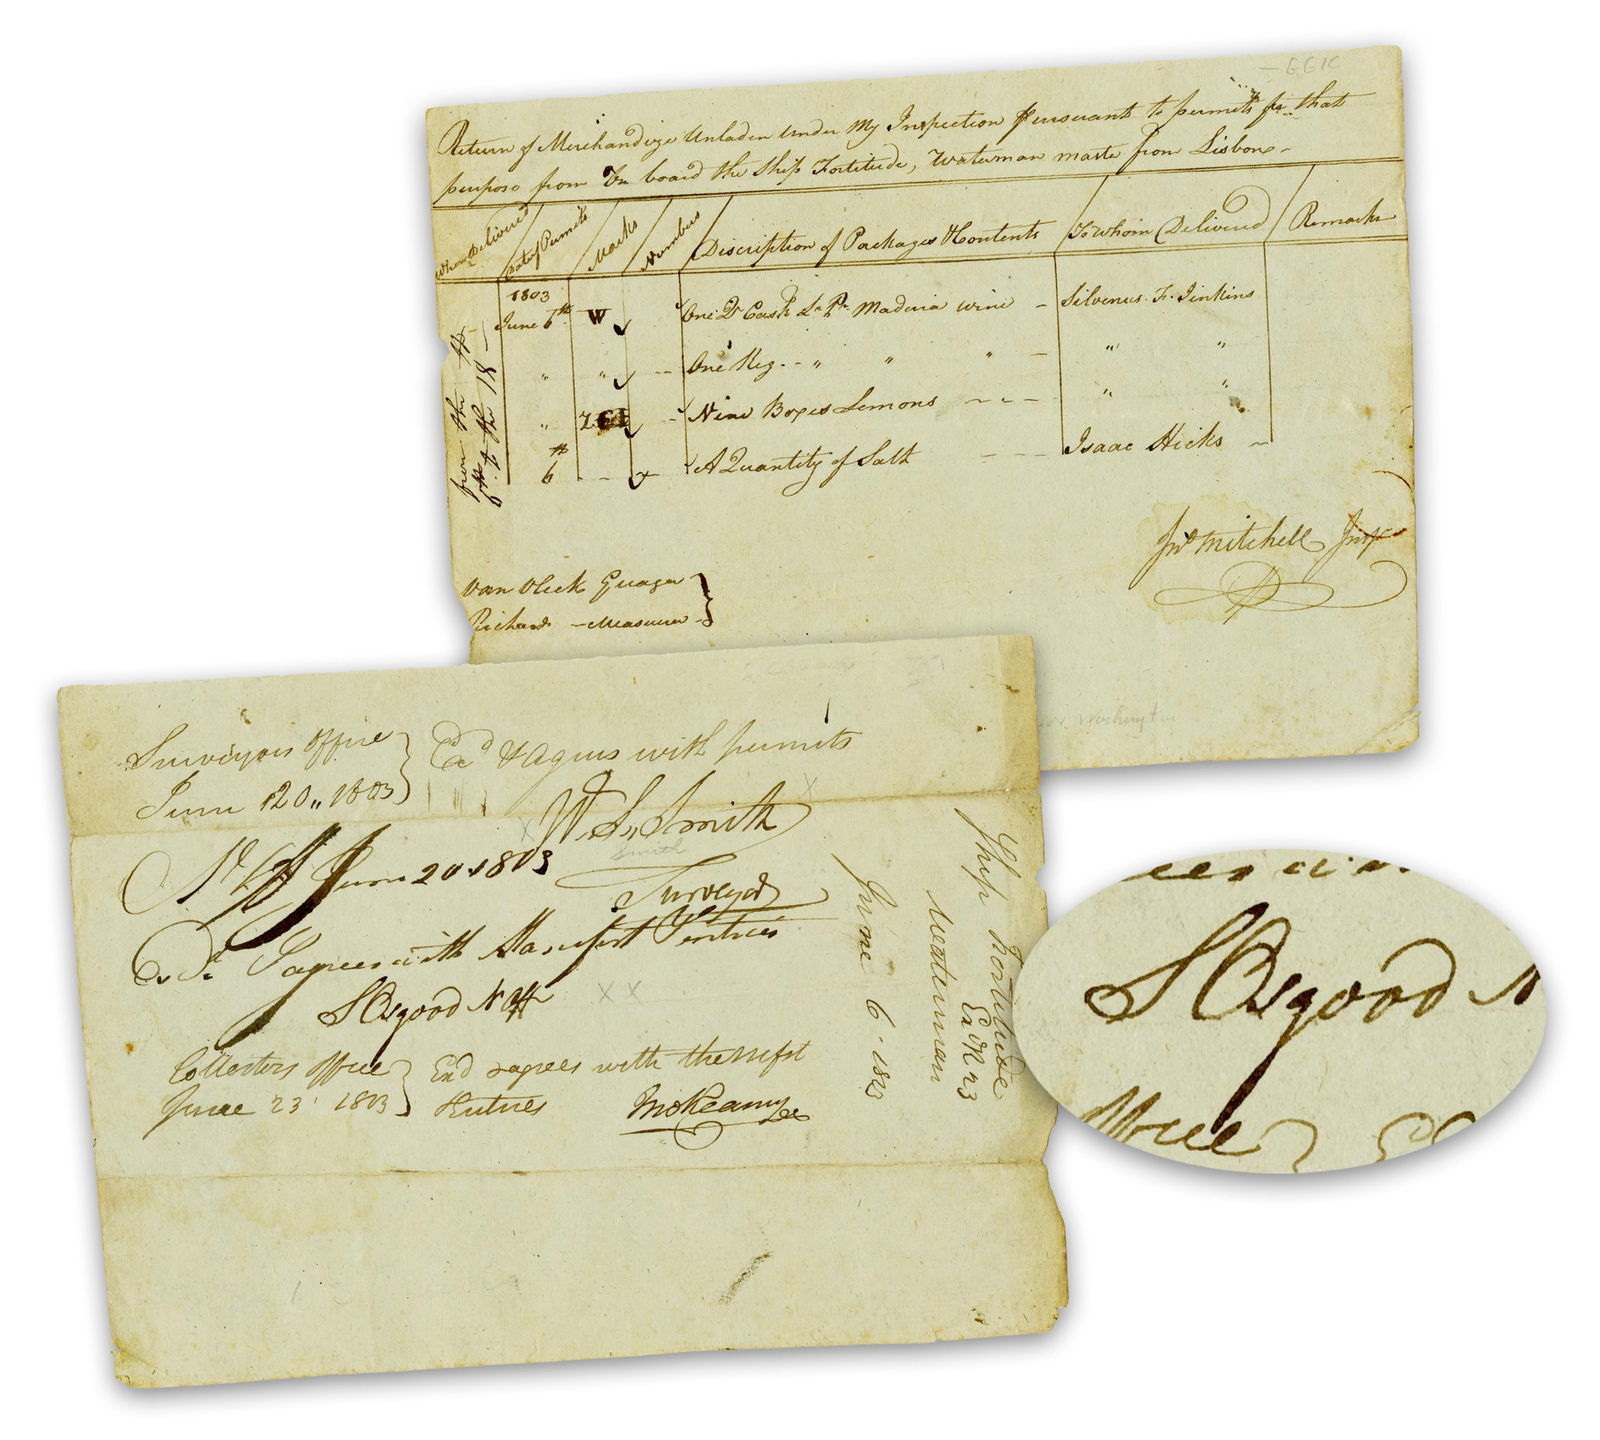 Return of Merchandize Unladen Under My Inspection pursuant to permits for that
purpose from On board the Ship Fortitude, Waterman master from Lisbon
When Delivered
Date of Permits
Marks
Numbers
Discription of Packages & Contents
To Whom Delivered
Remarks
from the 7th
of the 18
1803
June 6th W One Qr Cask Maderia wine - Silvenus F. Jinkins
" " One Keg - " " " - " "
" Nine Boxes Lemons - " - " "
6th - - A Quantity of Salt - - - Isaac Hicks
Jno Mitchell Insp
Van Vleck Guager
Richards - Measurer
Surveyors Office
June 20,, 1803
Exd & Agrees with permits
W. S. Smith
Smith
Surveyor
N Off June 20. 1803
Exd & agrees with Manifest & entries
S Osgood N Off
x x
Collectors Office
June 23 1803
Exd & agrees with the Mifst
Entries
Ship Fortitude
Waterman
June 6. 1803
S Osgood N
ffice